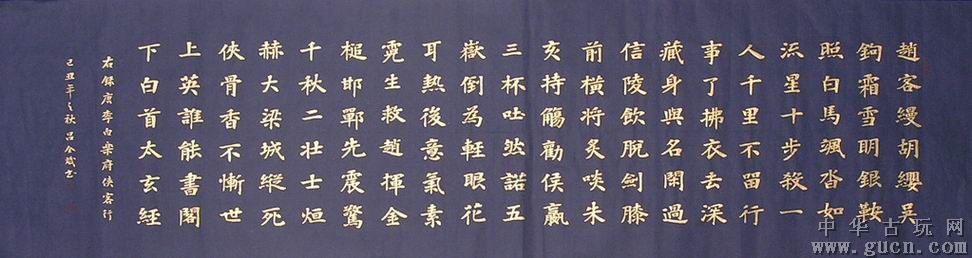 趙客縵胡纓吳
鉤霜雪明銀鞍
照白馬颯沓如
流星十步殺一
人千里不留行
事了拂衣去深
藏身與名閒過
信陵飲脫劍膝
前橫將炙啖朱
亥持觴勸侯嬴
三杯吐然諾五
嶽倒為輕眼花
耳熱後意氣素
霓生救趙揮金
槌邯鄲先震驚
千秋二壯士烜
赫大梁城縱死
俠骨香不慚世
上英誰能書閣
下白首太玄經
右錄唐李白樂府俠客行
己丑年之秋呂全斌書
中华古玩网
www.gucn.com